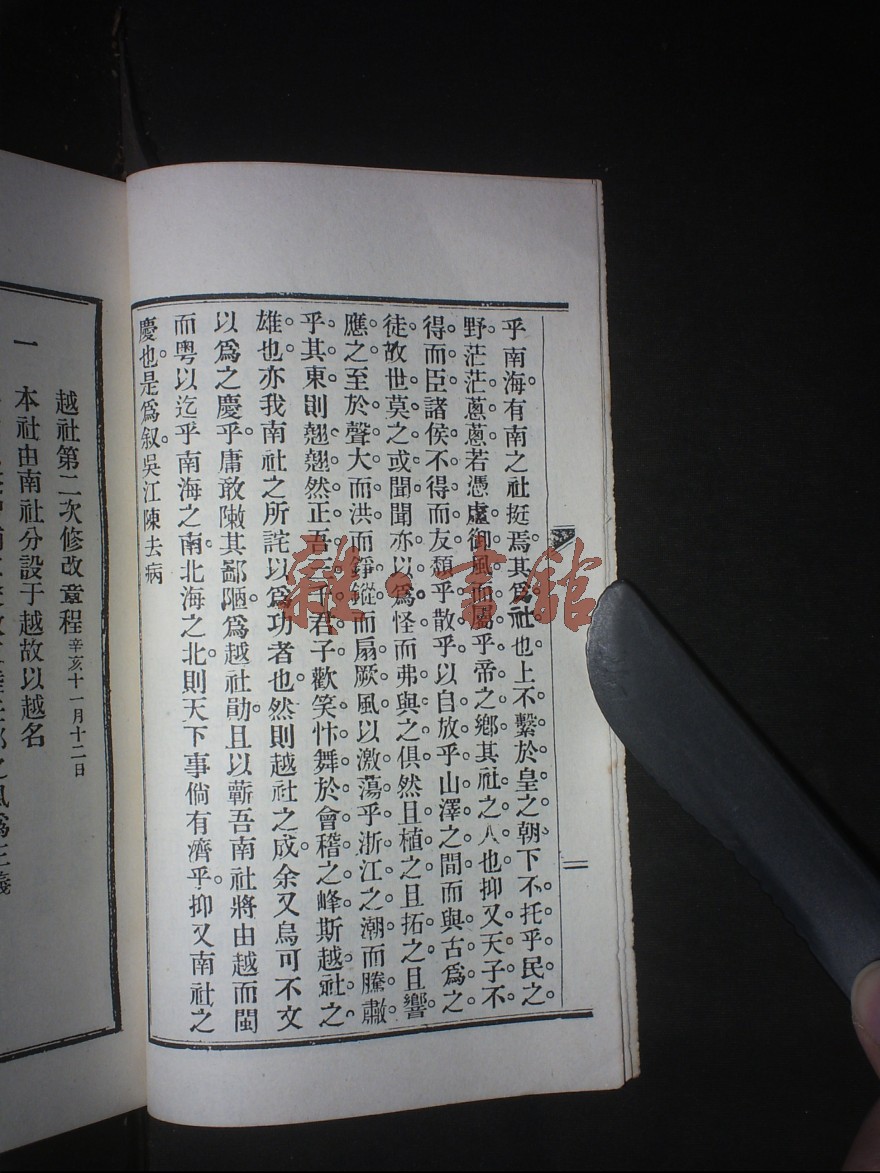 乎南海。有南之社挺焉。其爲社也。上不繫於皇之朝。下不托乎民之
野。茫茫蔥蔥。若憑虛御風而屬乎帝之鄉。其社之人也。抑又天子不
得而臣。諸侯不得而友。頹乎散乎。以自放乎山澤之間。而與古爲之
徒。故世莫之或聞。聞亦以爲怪而弗與之俱。然且植之。且拓之。且響
應之。至於聲大而洪。而錚鏦。而扇厥風以激蕩乎浙江之潮。而騰肅
乎其東。則翹翹然正吾二三子君子歡笑忭舞於會稽之峰。斯越社之
雄也。亦我南社之所詫以爲功者也。然則越社之成。余又烏可不文
以爲之慶乎。庸敢陳其鄙陋。爲越社勛。且以蘄吾南社將由越而閩
而粤以迄乎南海之南北海之北。則天下事倘有濟乎。抑又南社之
慶也。是爲叙。吳江陳去病
越社第二次修改章程辛亥十一月十二日
一 本社由南社分設于越故以越名
雜·書館